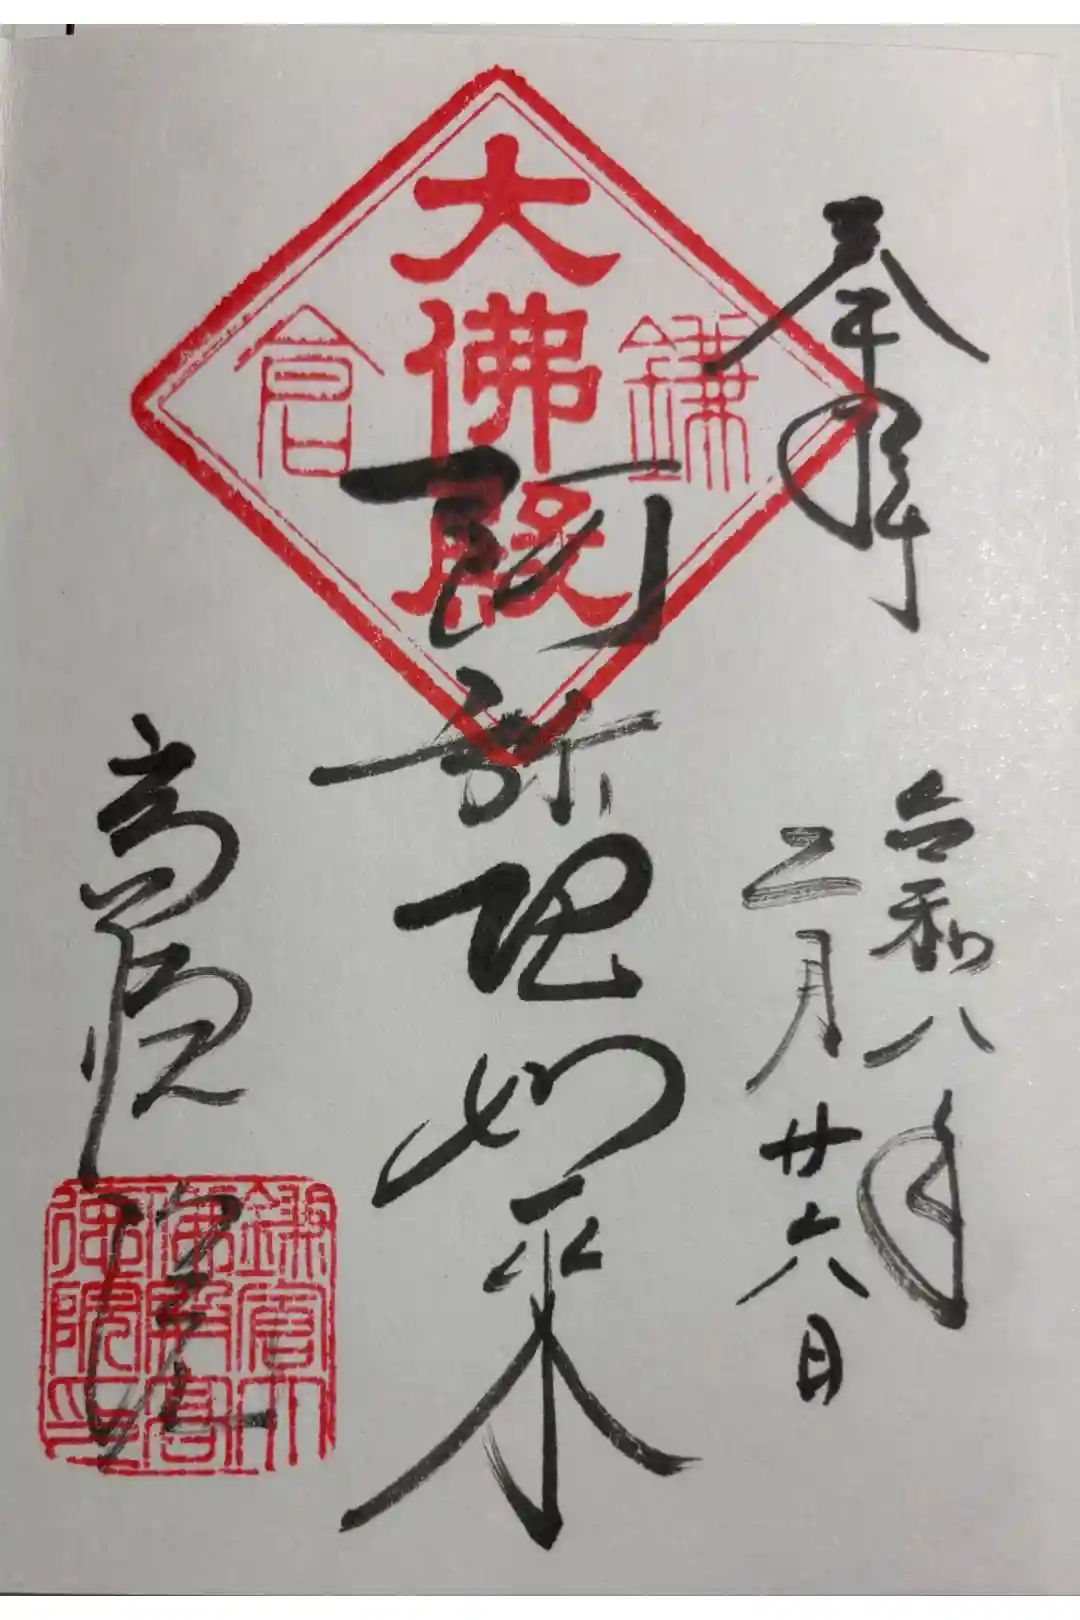 奉拝
令和八年
二月廿六日
大佛殿
鎌倉
阿弥陀如来
高徳院
鎌倉大佛殿高徳院印